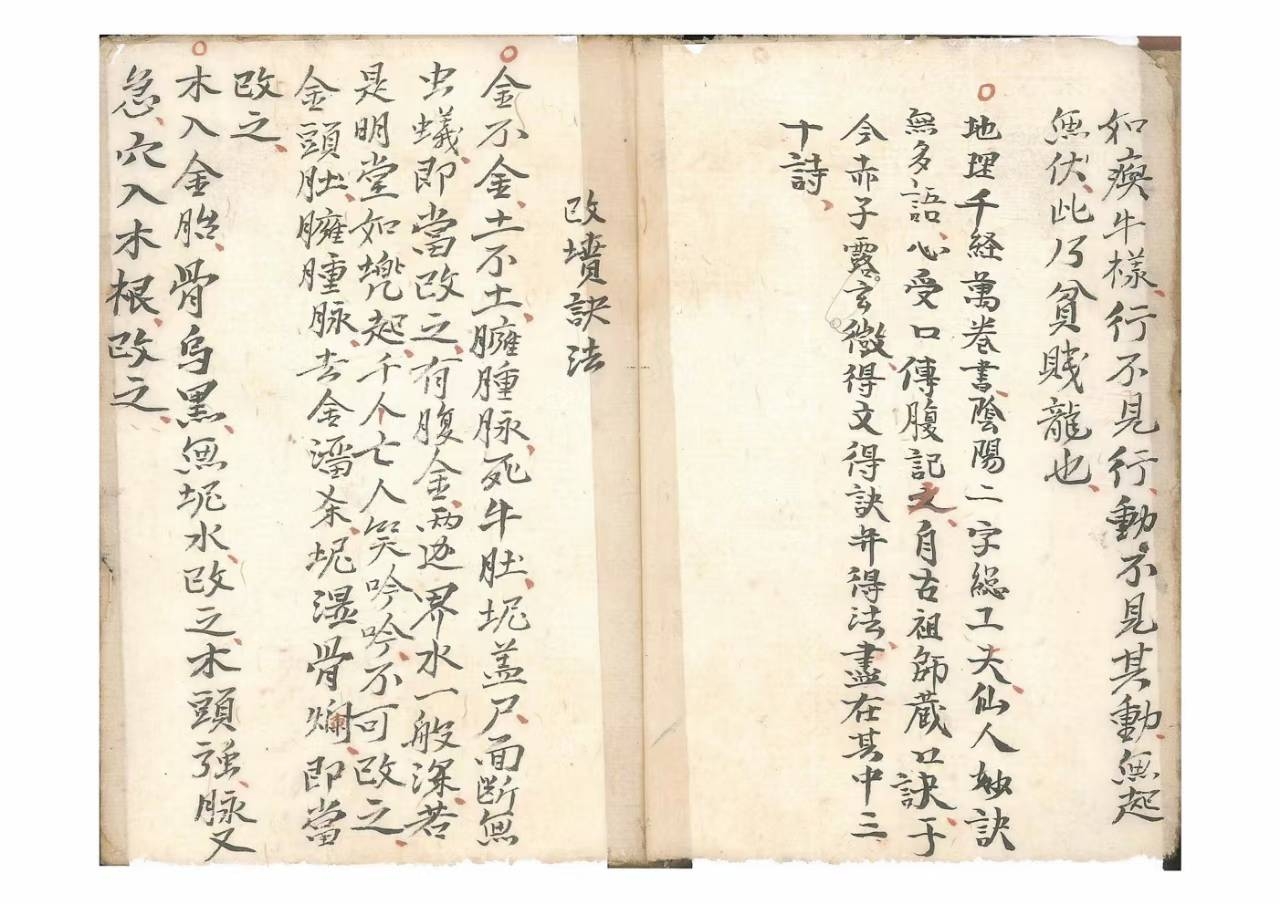 如瘓牛樣、行不見行、動不見其動、無起
無伏、此乃貧賎龍也、
地理千経萬巻書、陰陽二字総工夫、仙人妙訣
無多語、心受口傳腹記之、自古祖師蔵口訣、于
今赤子露玄微、得文得訣并得法、盡在其中三
十詩、
改墳訣法
金不金、土不土、臃腫脉、死牛肚、坭盖尸、面断無
虫蟻、即當改之、有腹金、両边界水一般深、若
是明堂如堍起、千个亡人笑吟吟、不可改之、
金頭肚、臃腫脉、去舍濇杀、坭濕骨爛、即當
改之、
木入金、骨烏黒、無坭水、改之、木頭強、脉又
急、穴入木根、改之、